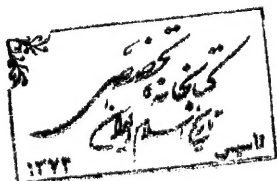 کتابخانه تخصصی
تاریخ اسلام و ایران
تاسیس ۱۳۷۳